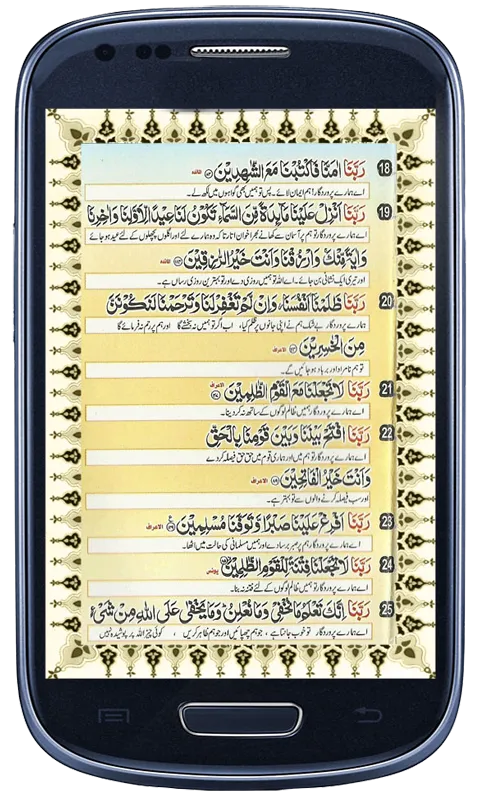 18 رَبَّنَا اٰمَنَّا فَاكْتُبْنَا مَعَ الشّٰهِدِيْنَ المائدہ
اے ہمارے پروردگار ہم ایمان لائے۔ پس تو ہمیں بھی گواہوں میں لکھ لے۔
19 رَبَّنَا اَنْزِلْ عَلَيْنَا مَآئِدَةً مِّنَ السَّمَآءِ تَكُوْنُ لَنَا عِيْدًا لِّاَوَّلِنَا وَاٰخِرِنَا
اے ہمارے پروردگار تو ہم پر آسمان سے کھانے بھرا خوان اتار تاکہ وہ ہمارے لئے اور اگلوں پچھلوں کے لئے عید ہو جائے
وَاٰيَةً مِّنْكَ وَارْزُقْنَا وَاَنْتَ خَيْرُ الرّٰزِقِيْنَ المائدہ
اور تیری ایک نشانی بن جائے۔ اے اللہ تو ہمیں روزی دے اور تو بہترین روزی رساں ہے۔
20 رَبَّنَا ظَلَمْنَا اَنْفُسَنَا وَاِنْ لَّمْ تَغْفِرْ لَنَا وَتَرْحَمْنَا لَنَكُوْنَنَّ
ہمارے پروردگار بے شک ہم نے اپنی جانوں پر ظلم کیا، اب اگر تو ہمیں نہ بخشے گا اور ہم پر رحم نہ فرمائے گا
مِنَ الْخٰسِرِيْنَ الاعراف
تو ہم نامراد اور برباد ہو جائیں گے۔
21 رَبَّنَا لَا تَجْعَلْنَا مَعَ الْقَوْمِ الظّٰلِمِيْنَ الاعراف
اے ہمارے پروردگار ہمیں ظالم لوگوں کے ساتھ نہ کر دینا۔
22 رَبَّنَا افْتَحْ بَيْنَنَا وَبَيْنَ قَوْمِنَا بِالْحَقِّ
اے ہمارے پروردگار تو ہم میں اور ہماری قوم میں حق حق فیصلہ کر دے
وَاَنْتَ خَيْرُ الْفَاتِحِيْنَ الاعراف
اور سب فیصلہ کرنے والوں سے تو بہتر ہے۔
23 رَبَّنَا اَفْرِغْ عَلَيْنَا صَبْرًا وَّتَوَفَّنَا مُسْلِمِيْنَ الاعراف
اے ہمارے پروردگار ہم پر صبر برسا دے اور ہمیں مسلمانی کی حالت میں اٹھا۔
24 رَبَّنَا لَا تَجْعَلْنَا فِتْنَةً لِّلْقَوْمِ الظّٰلِمِيْنَ یونس
اے ہمارے پروردگار تو ہمیں ظالم لوگوں کے لئے فتنہ نہ بنا۔
25 رَبَّنَا اِنَّكَ تَعْلَمُ مَا نُخْفِيْ وَمَا نُعْلِنُ وَمَا يَخْفٰى عَلَى اللهِ مِنْ شَيْءٍ
اے ہمارے پروردگار تو خوب جانتا ہے، جو ہم چھپائیں اور جو ہم ظاہر کریں، کوئی چیز اللہ پر پوشیدہ نہیں